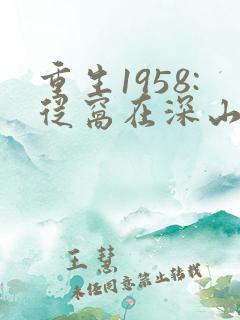 重生1958:
从窝在深山
王慧
未经同意禁止转载